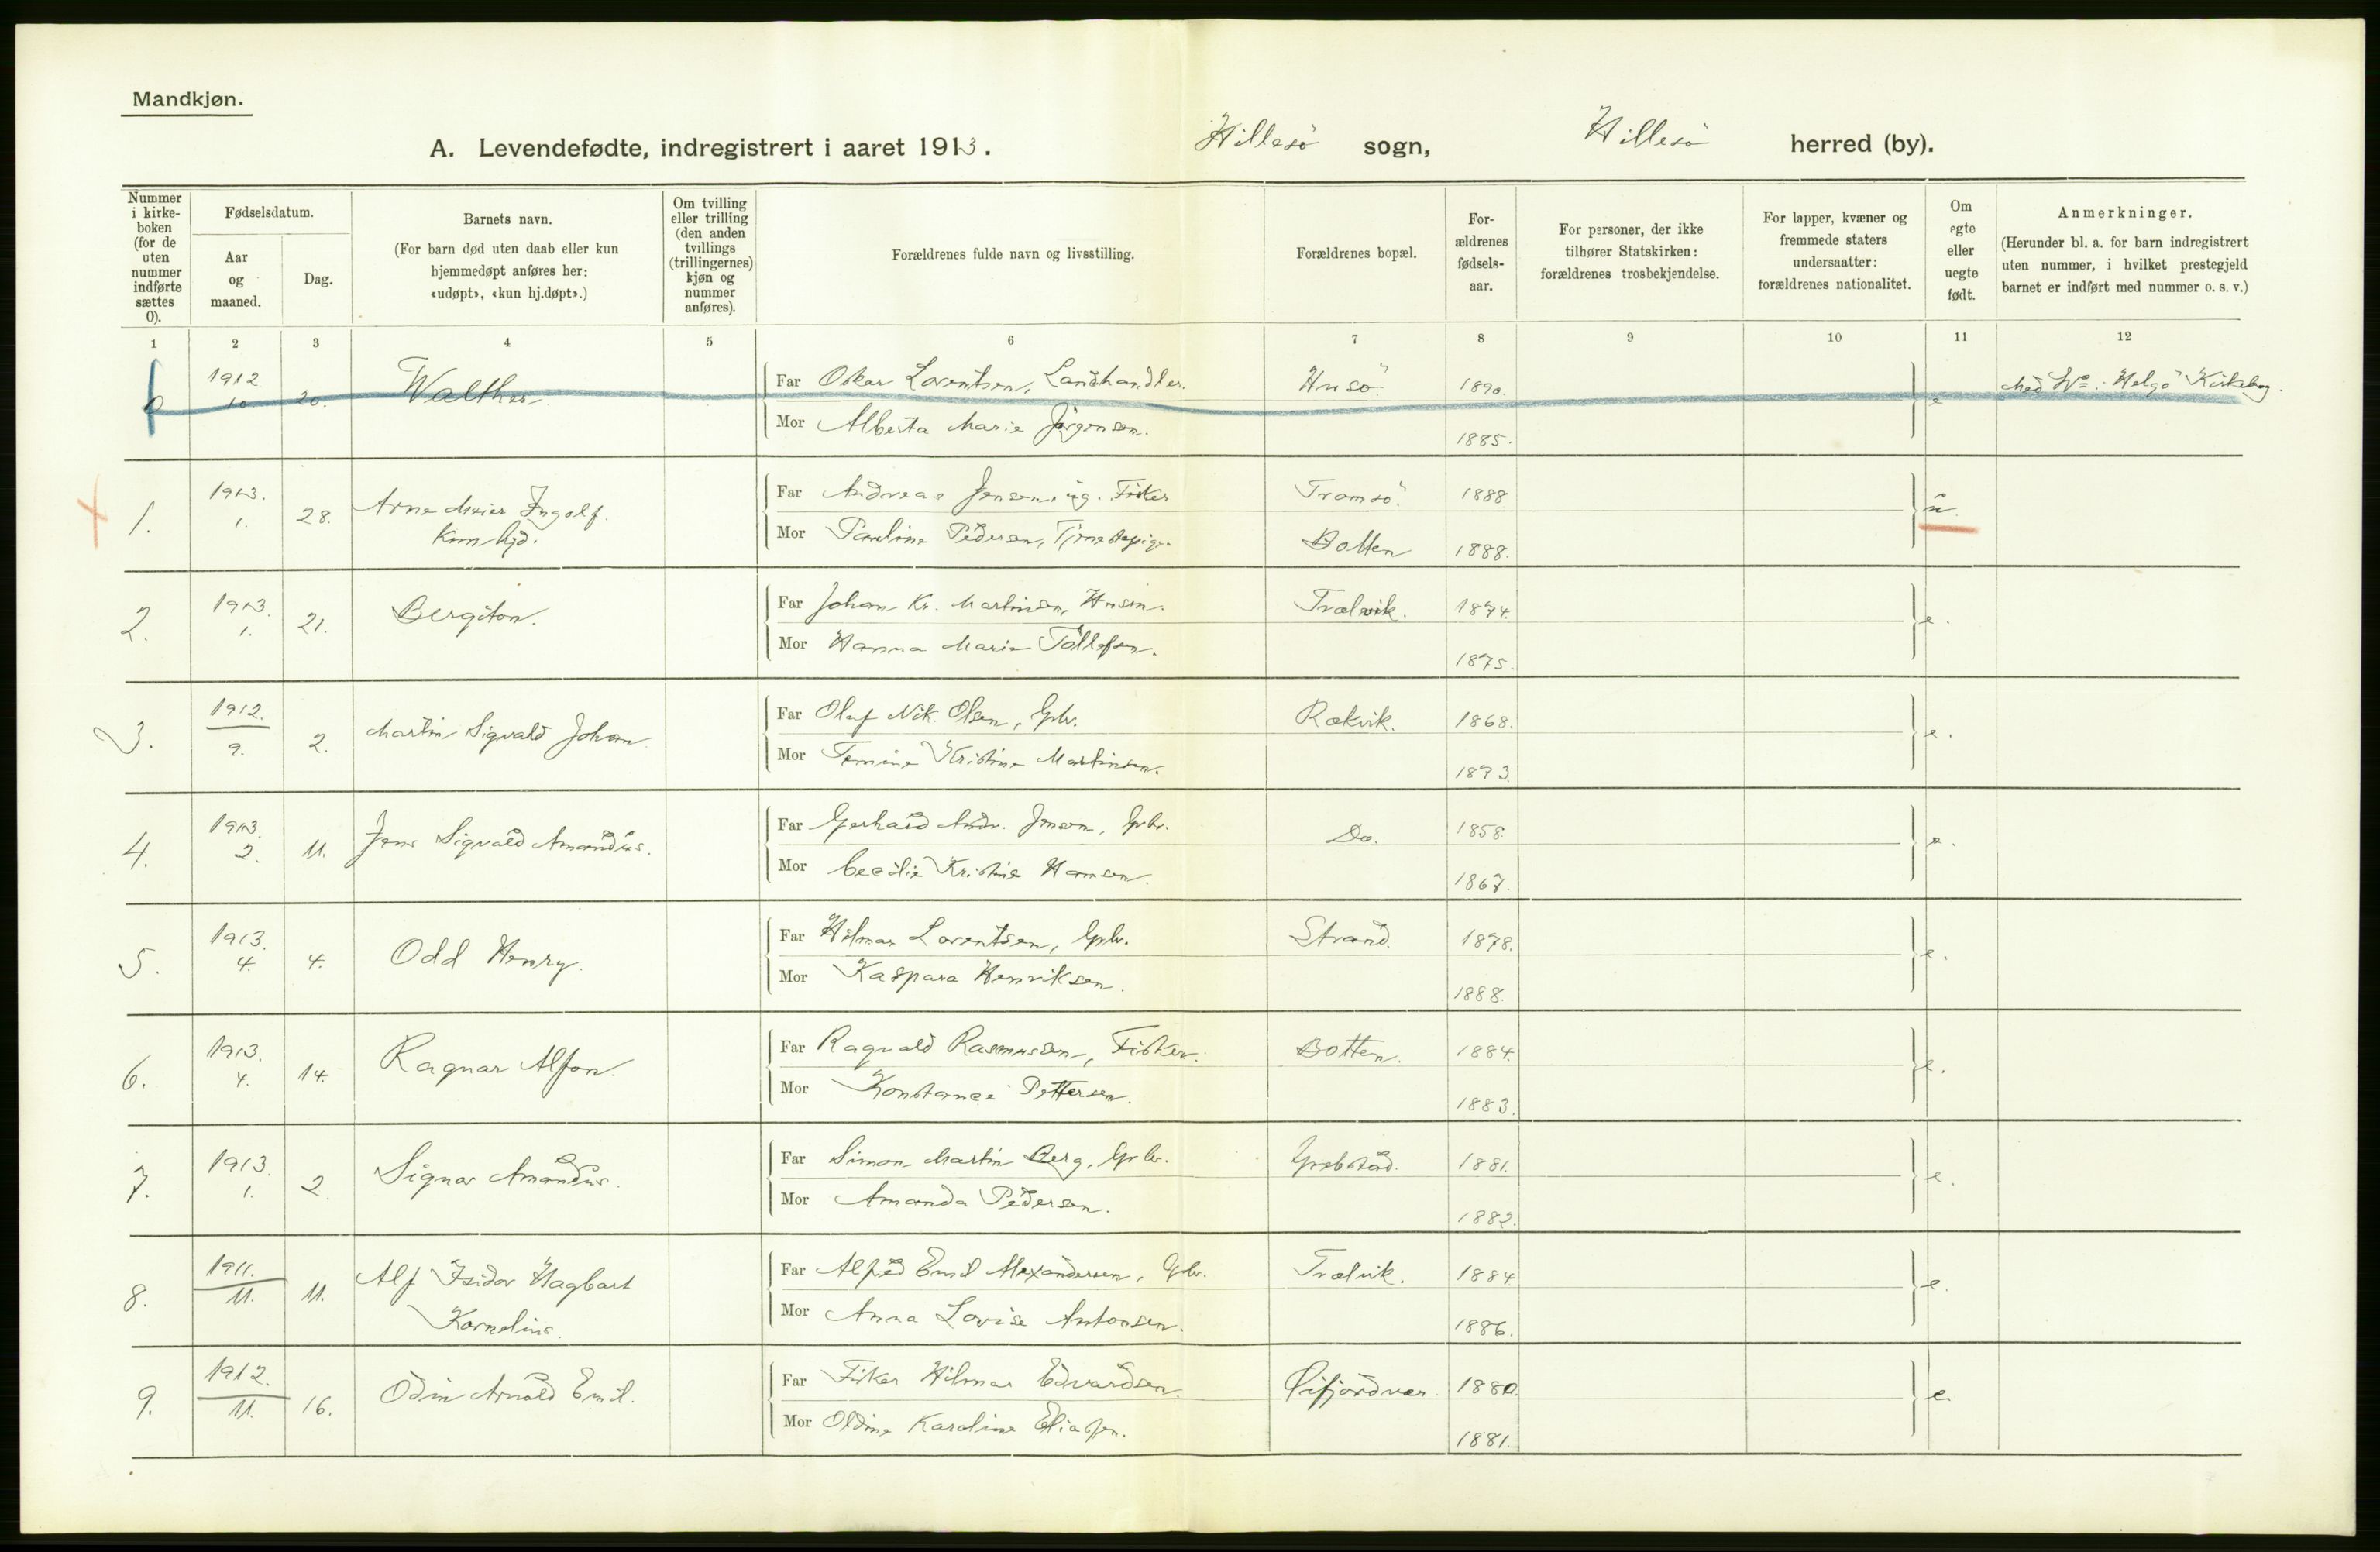 Mandkjøn.
A. Levendefødte, indregistrert i aaret 1913. Hillesö sogn, Hillesö herred (by).
Nummer i kirkeboken (for de uten nummer indførte sættes 0).
Fødselsdatum.
Aar og maaned.
Dag.
Barnets navn.
(For barn død uten daab eller kun hjemmedøpt anføres her: «udøpt», «kun hj.døpt».)
Om tvilling eller trilling (den anden tvillings (trillingernes) kjøn og nummer anføres).
Forældrenes fulde navn og livsstilling.
Forældrenes bopæl.
For-
ældrenes
fødsels-
aar.
For personer, der ikke
tilhører Statskirken:
forældrenes trosbekjendelse.
For lapper, kvæner og
fremmede staters
undersaatter:
forældrenes nationalitet.
Om
egte
eller
uegte
født.
Anmerkninger.
(Herunder bl. a. for barn indregistrert
uten nummer, i hvilket prestegjeld
barnet er indført med nummer o. s. v.)
1 2 3 4 5 6 7 8 9 10 11 12
0 1912 10 20. Walther Far Oskar Lorentsen, Landhandler. Husö 1890. e Med No. i Helgö Kirkebog.
Mor Alberta Marie Jørgensen. 1885.
1. 1913. 1. 28. Arne Meier Ingolf. Far Andreas Jensen, ug. Fisker Tromsö. 1888 u.
Kun hjd. Mor Pauline Pedersen, Tjenestepige. Botten 1888.
2. 1913. 1. 21. Bergiton. Far Johan Kr. Martinsen, Husm. Trælvik. 1874. e.
Mor Hanna Marie Tollefsen. 1875.
3. 1912. 9. 2. Martin Sigvald Johan Far Olaf Nik. Olsen, Gbr. Rækvik. 1868. e.
Mor Kristine Martinsen. 1873.
4. 1913. 2. 11. Jens Sigvald Amandus. Far Gerhard Andr. Jensen, Gbr. Do. 1858. e.
Mor Cecilie Kristine Hansen. 1867.
5. 1913. 4. 4. Odd Henry. Far Hilmar Lorentsen, Gbr. Strand. 1878. e.
Mor Kaspara Henriksen. 1888.
6. 1913. 4. 14. Ragnar Alfon. Far Ragvald Rasmussen, Fisker. Botten. 1884. e.
Mor Konstance Pettersen. 1883.
7. 1913. 1. 2. Signar Amandus. Far Simon Martin Berg, Gbr. Grebstad. 1881. e.
Mor Amanda Pedersen. 1882.
8. 1911. 11. 11. Alf Isidor Hagbart Far Alfred Emil Alexandersen, Gbr. Trælvik. 1884 e.
Kornelius. Mor Anna Lovise Antonsen. 1886.
9. 1912. 11. 16. Odin Arnold Emil. Far Fisker Hilmar Edvardsen. Øifjordvær. 1880. e.
Mor Oldine Karoline Eliassen. 1881.